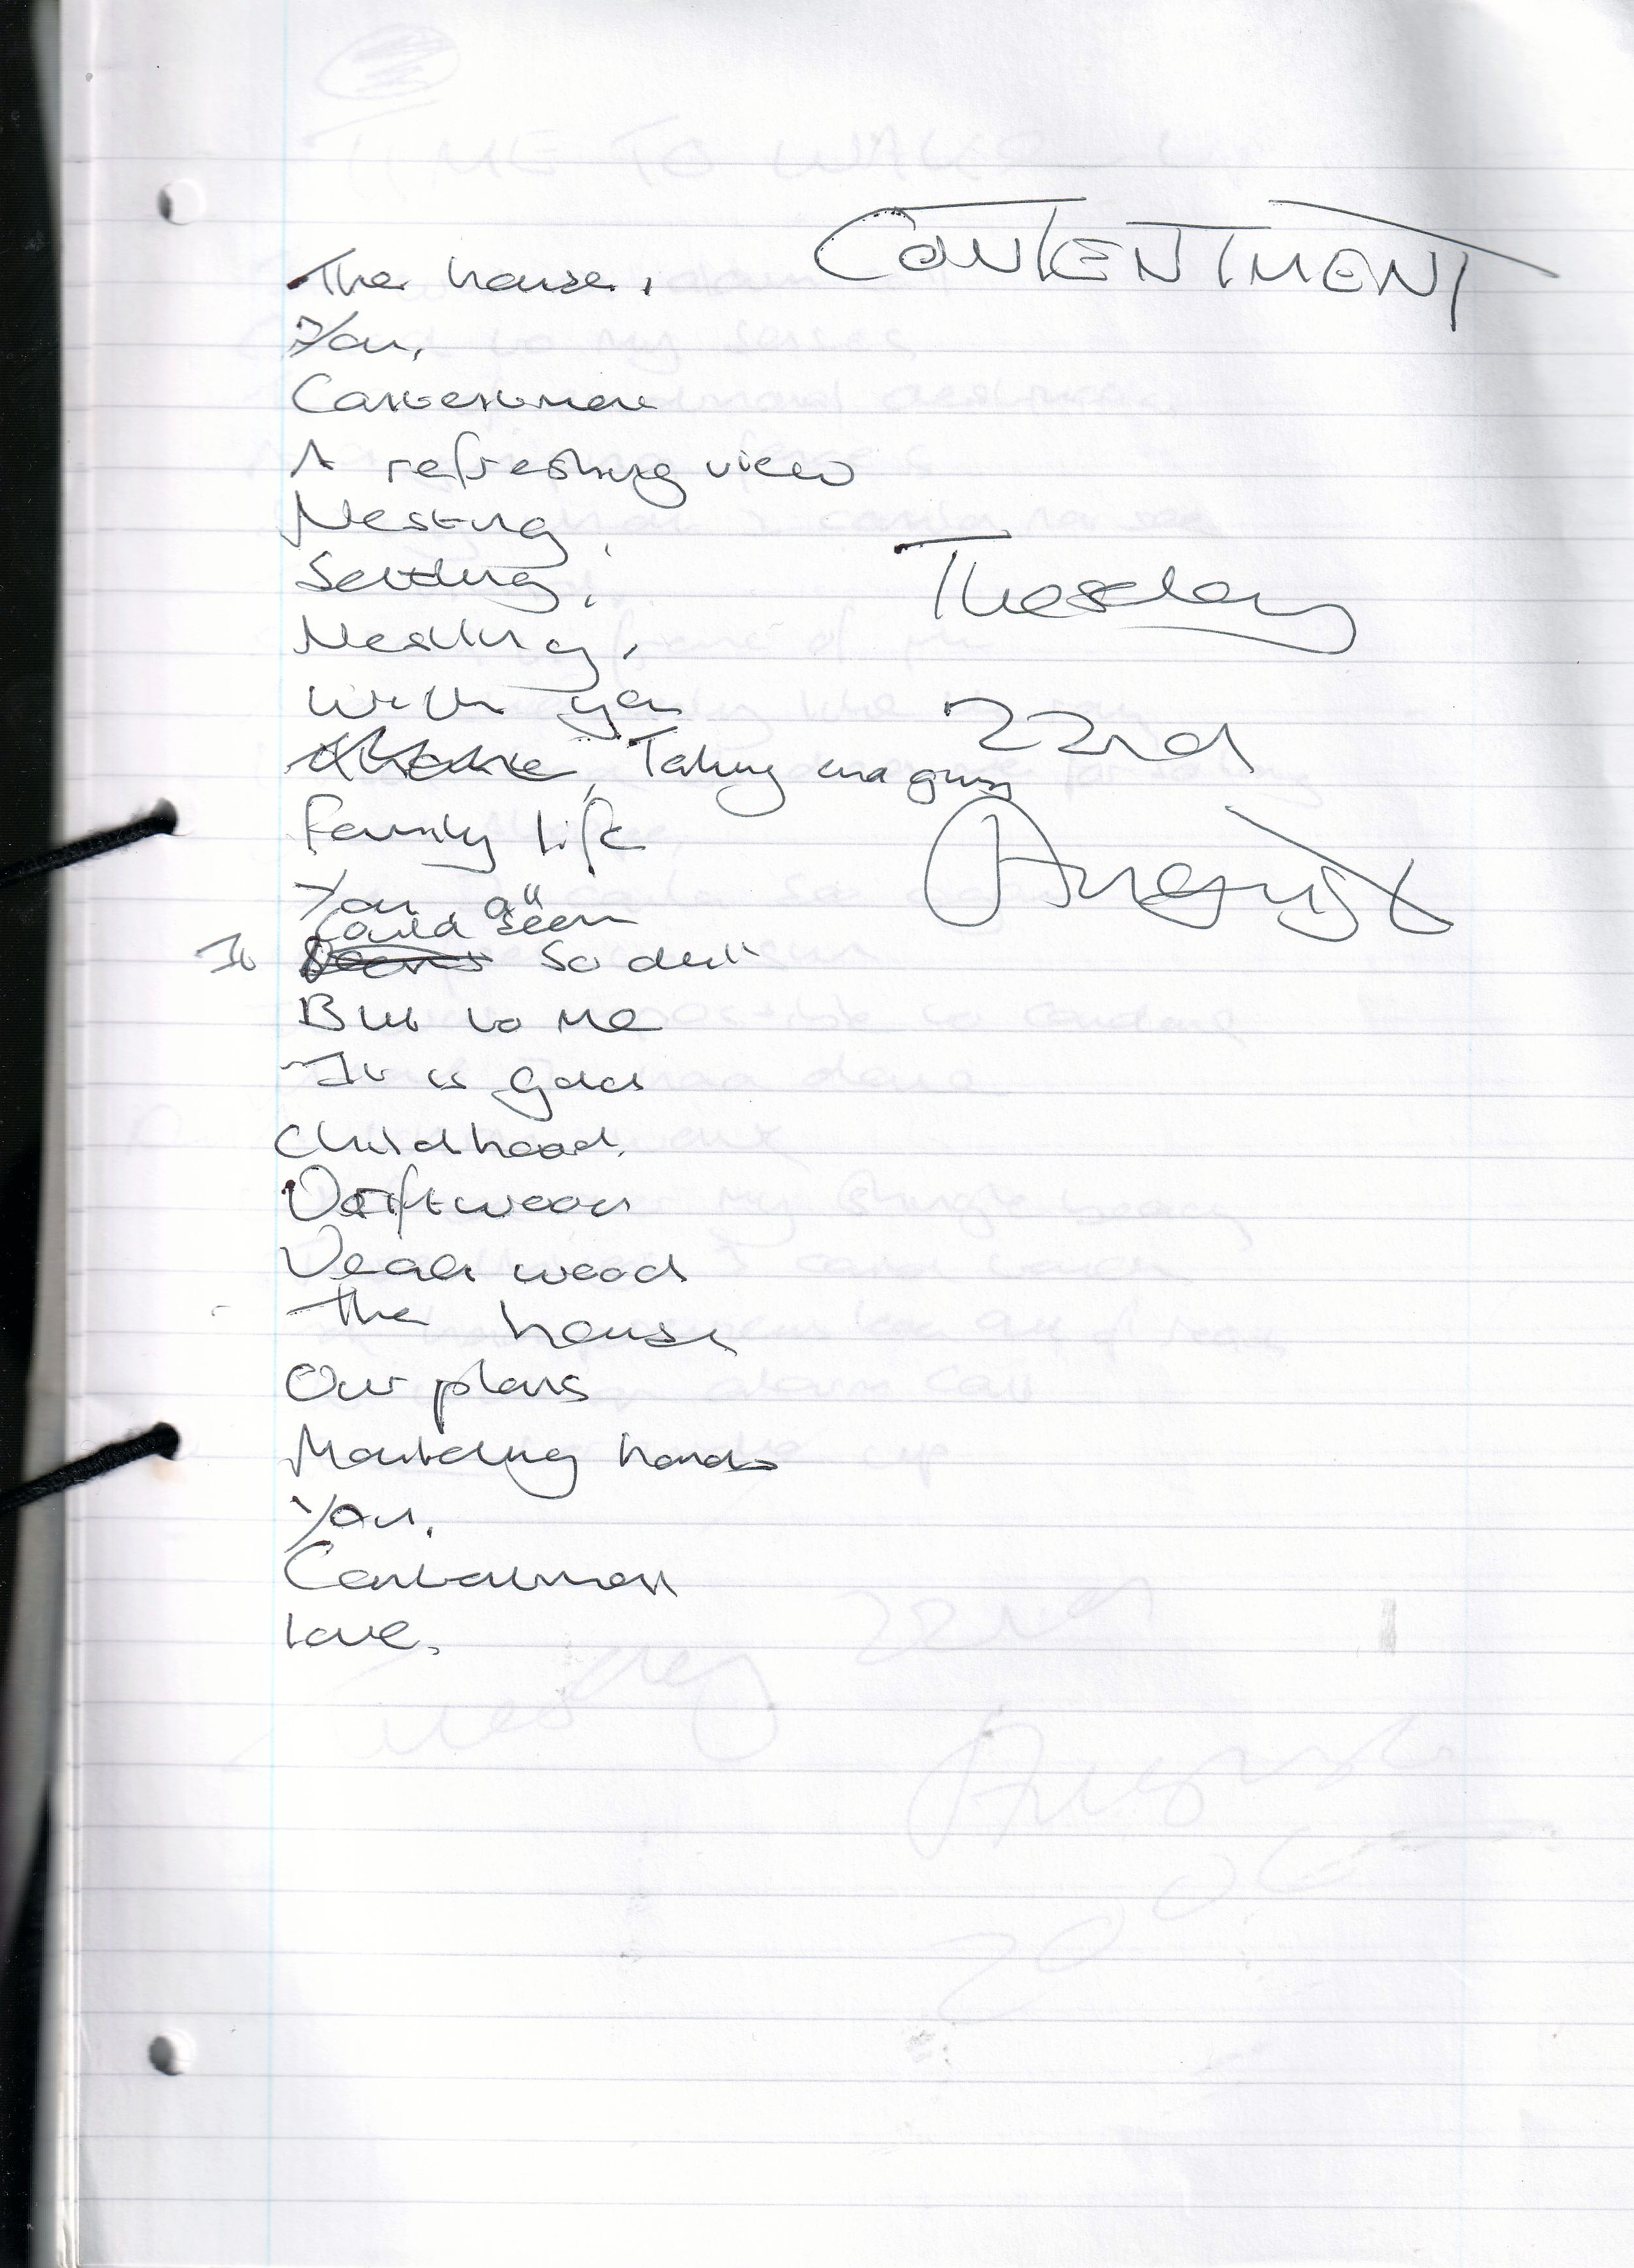 CONTENTMENT
The house,
You,
Contentment
A refreshing view
Nesting,
Settling,
Nestling,
With you
Taking and giving
Family life
You all
It could seem so dull
But to me
It is gold
Childhood,
Driftwood
Dead wood
The house
Our plans
Moulding hands
You,
Contentment
Love.
Tuesday
22nd
August